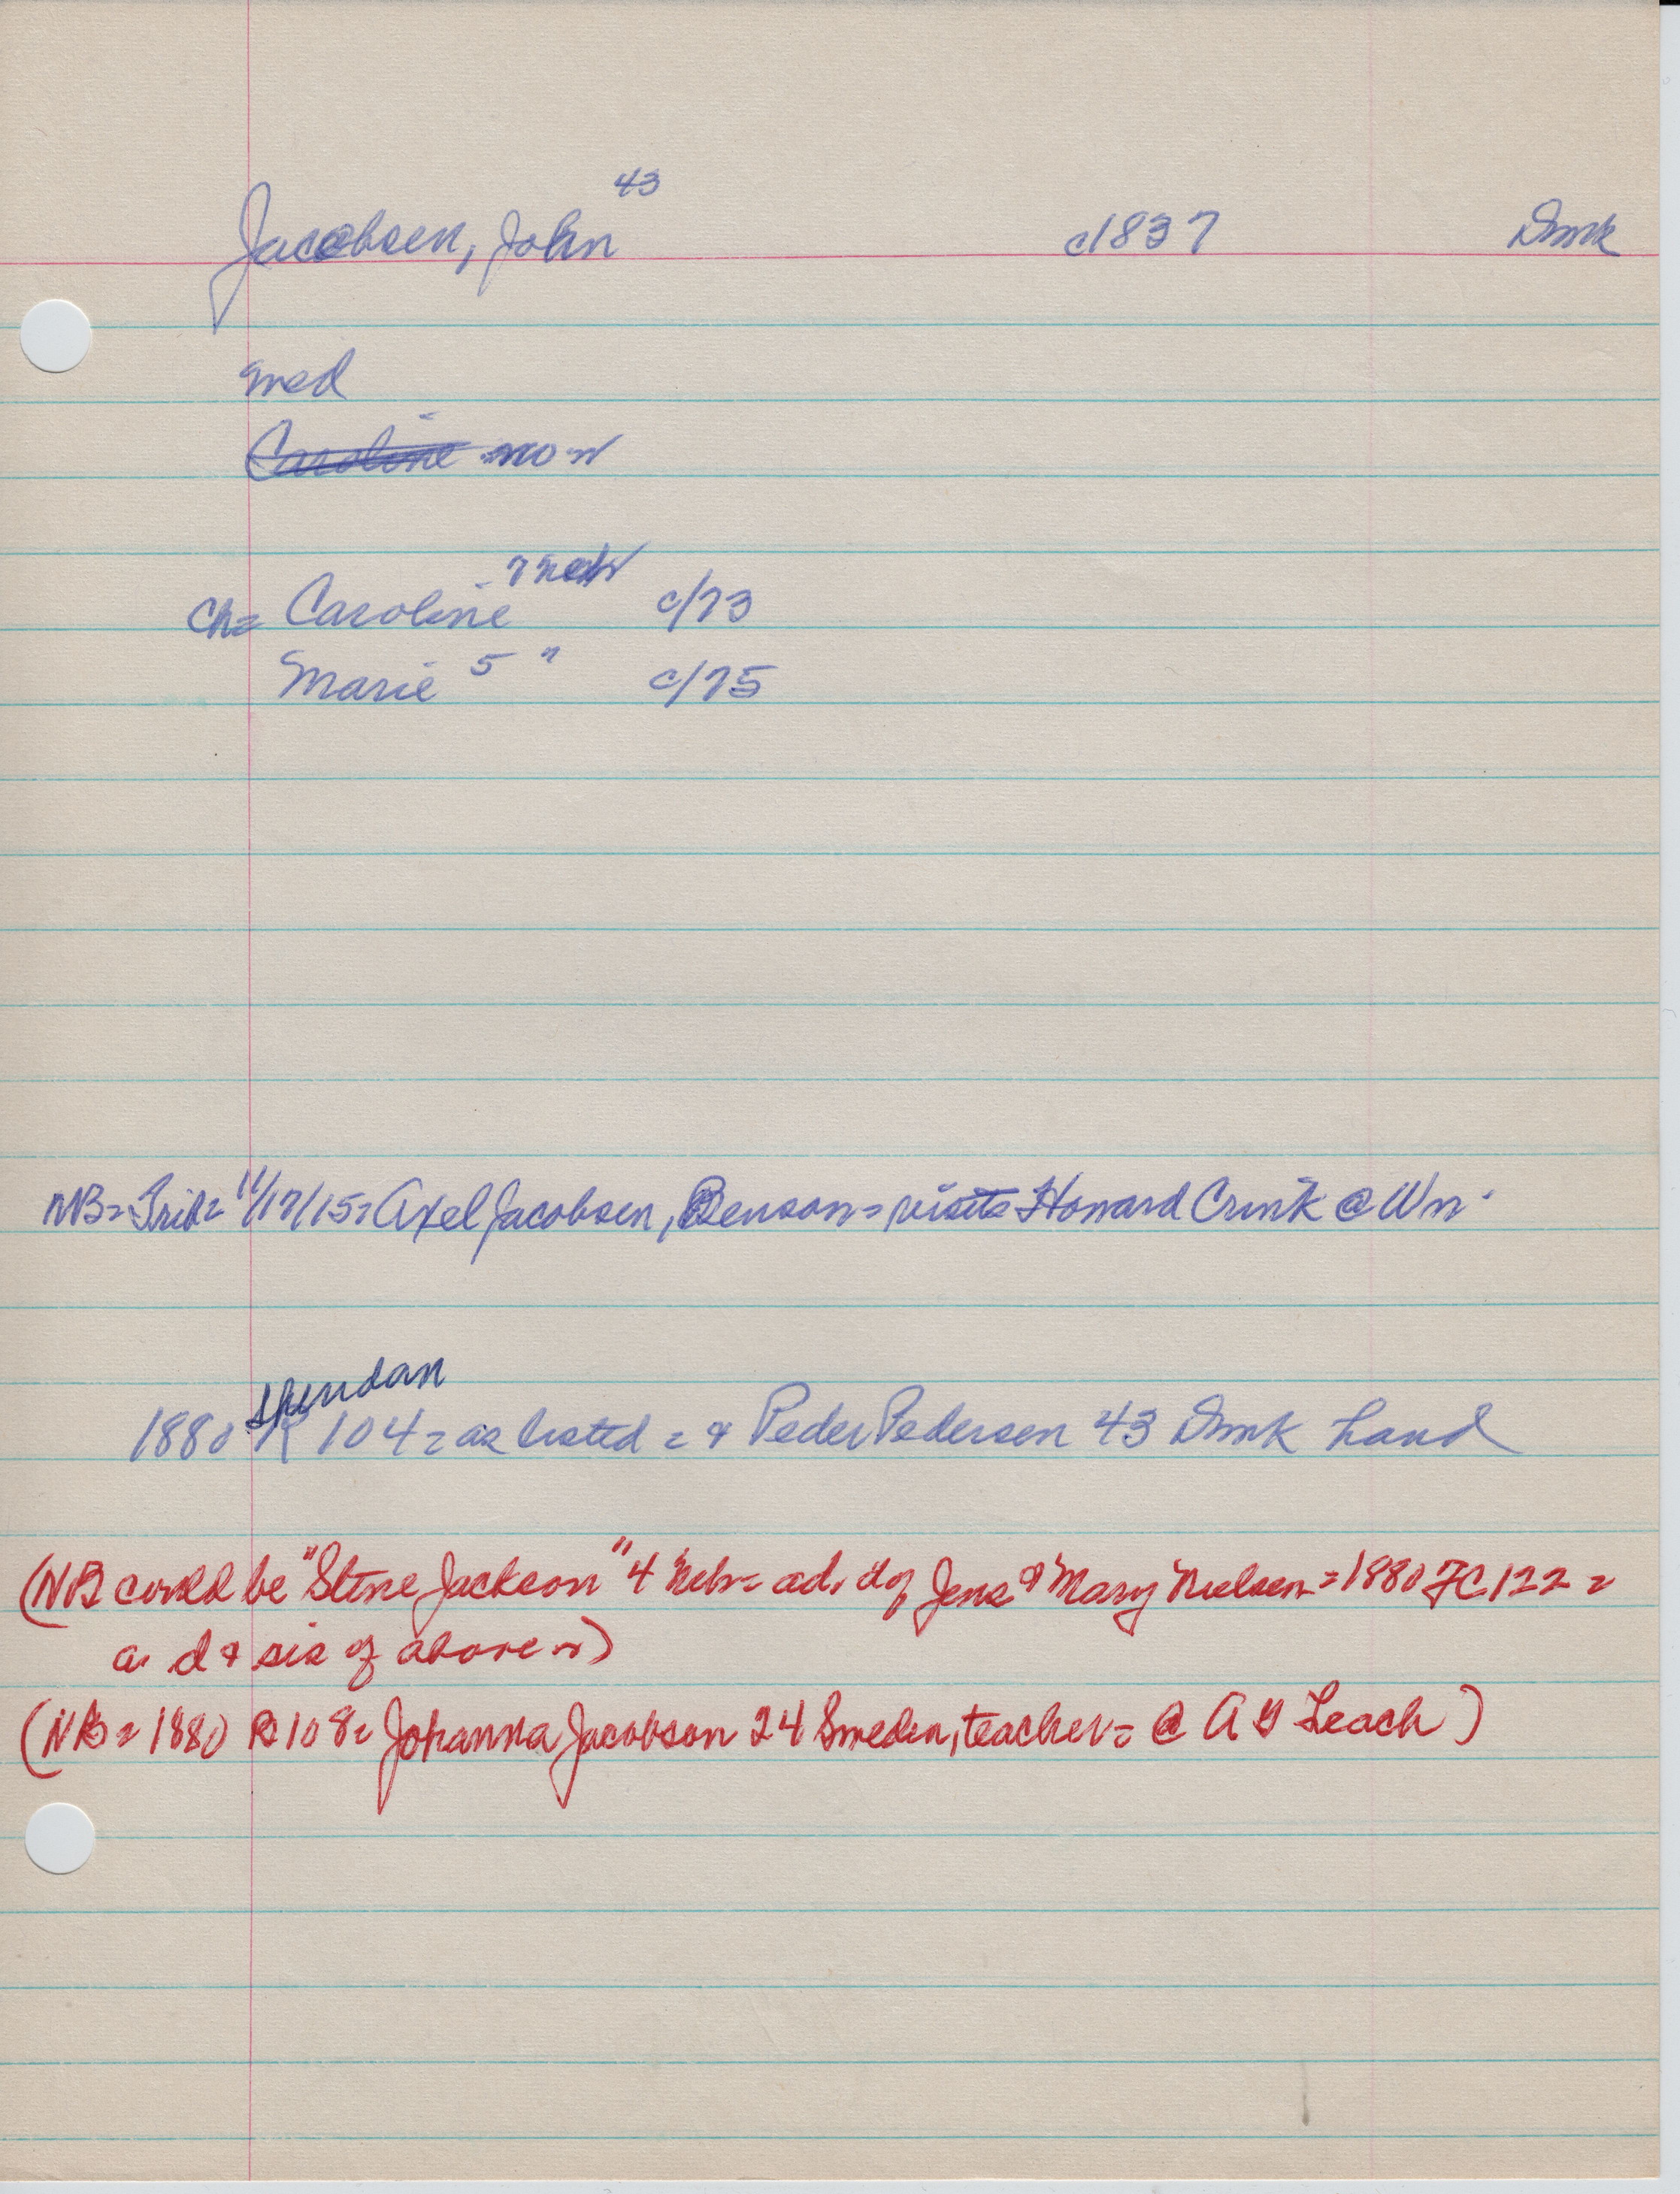 Jacobsen, John 43 c1837 Dmk
med
Caroline now
Ch= Caroline 7 Neb c/73
Marie 5 " c/75
NB= Trib= 11/17/15= Axel Jacobsen, Benson= visits Howard Crink @ Wn.
Sheridan
1880 R 104= as listed = & Peder Pedersen 43 Dmk Land
(NB could be "Stine Jackson" 4 Neb= ad. d of Jens & Mary Nielsen=1880 FC 122 =
a. d & sis of above)
(NB= 1880 R 108= Johanna Jacobson 24 Sweden, teacher= @ A Leach)